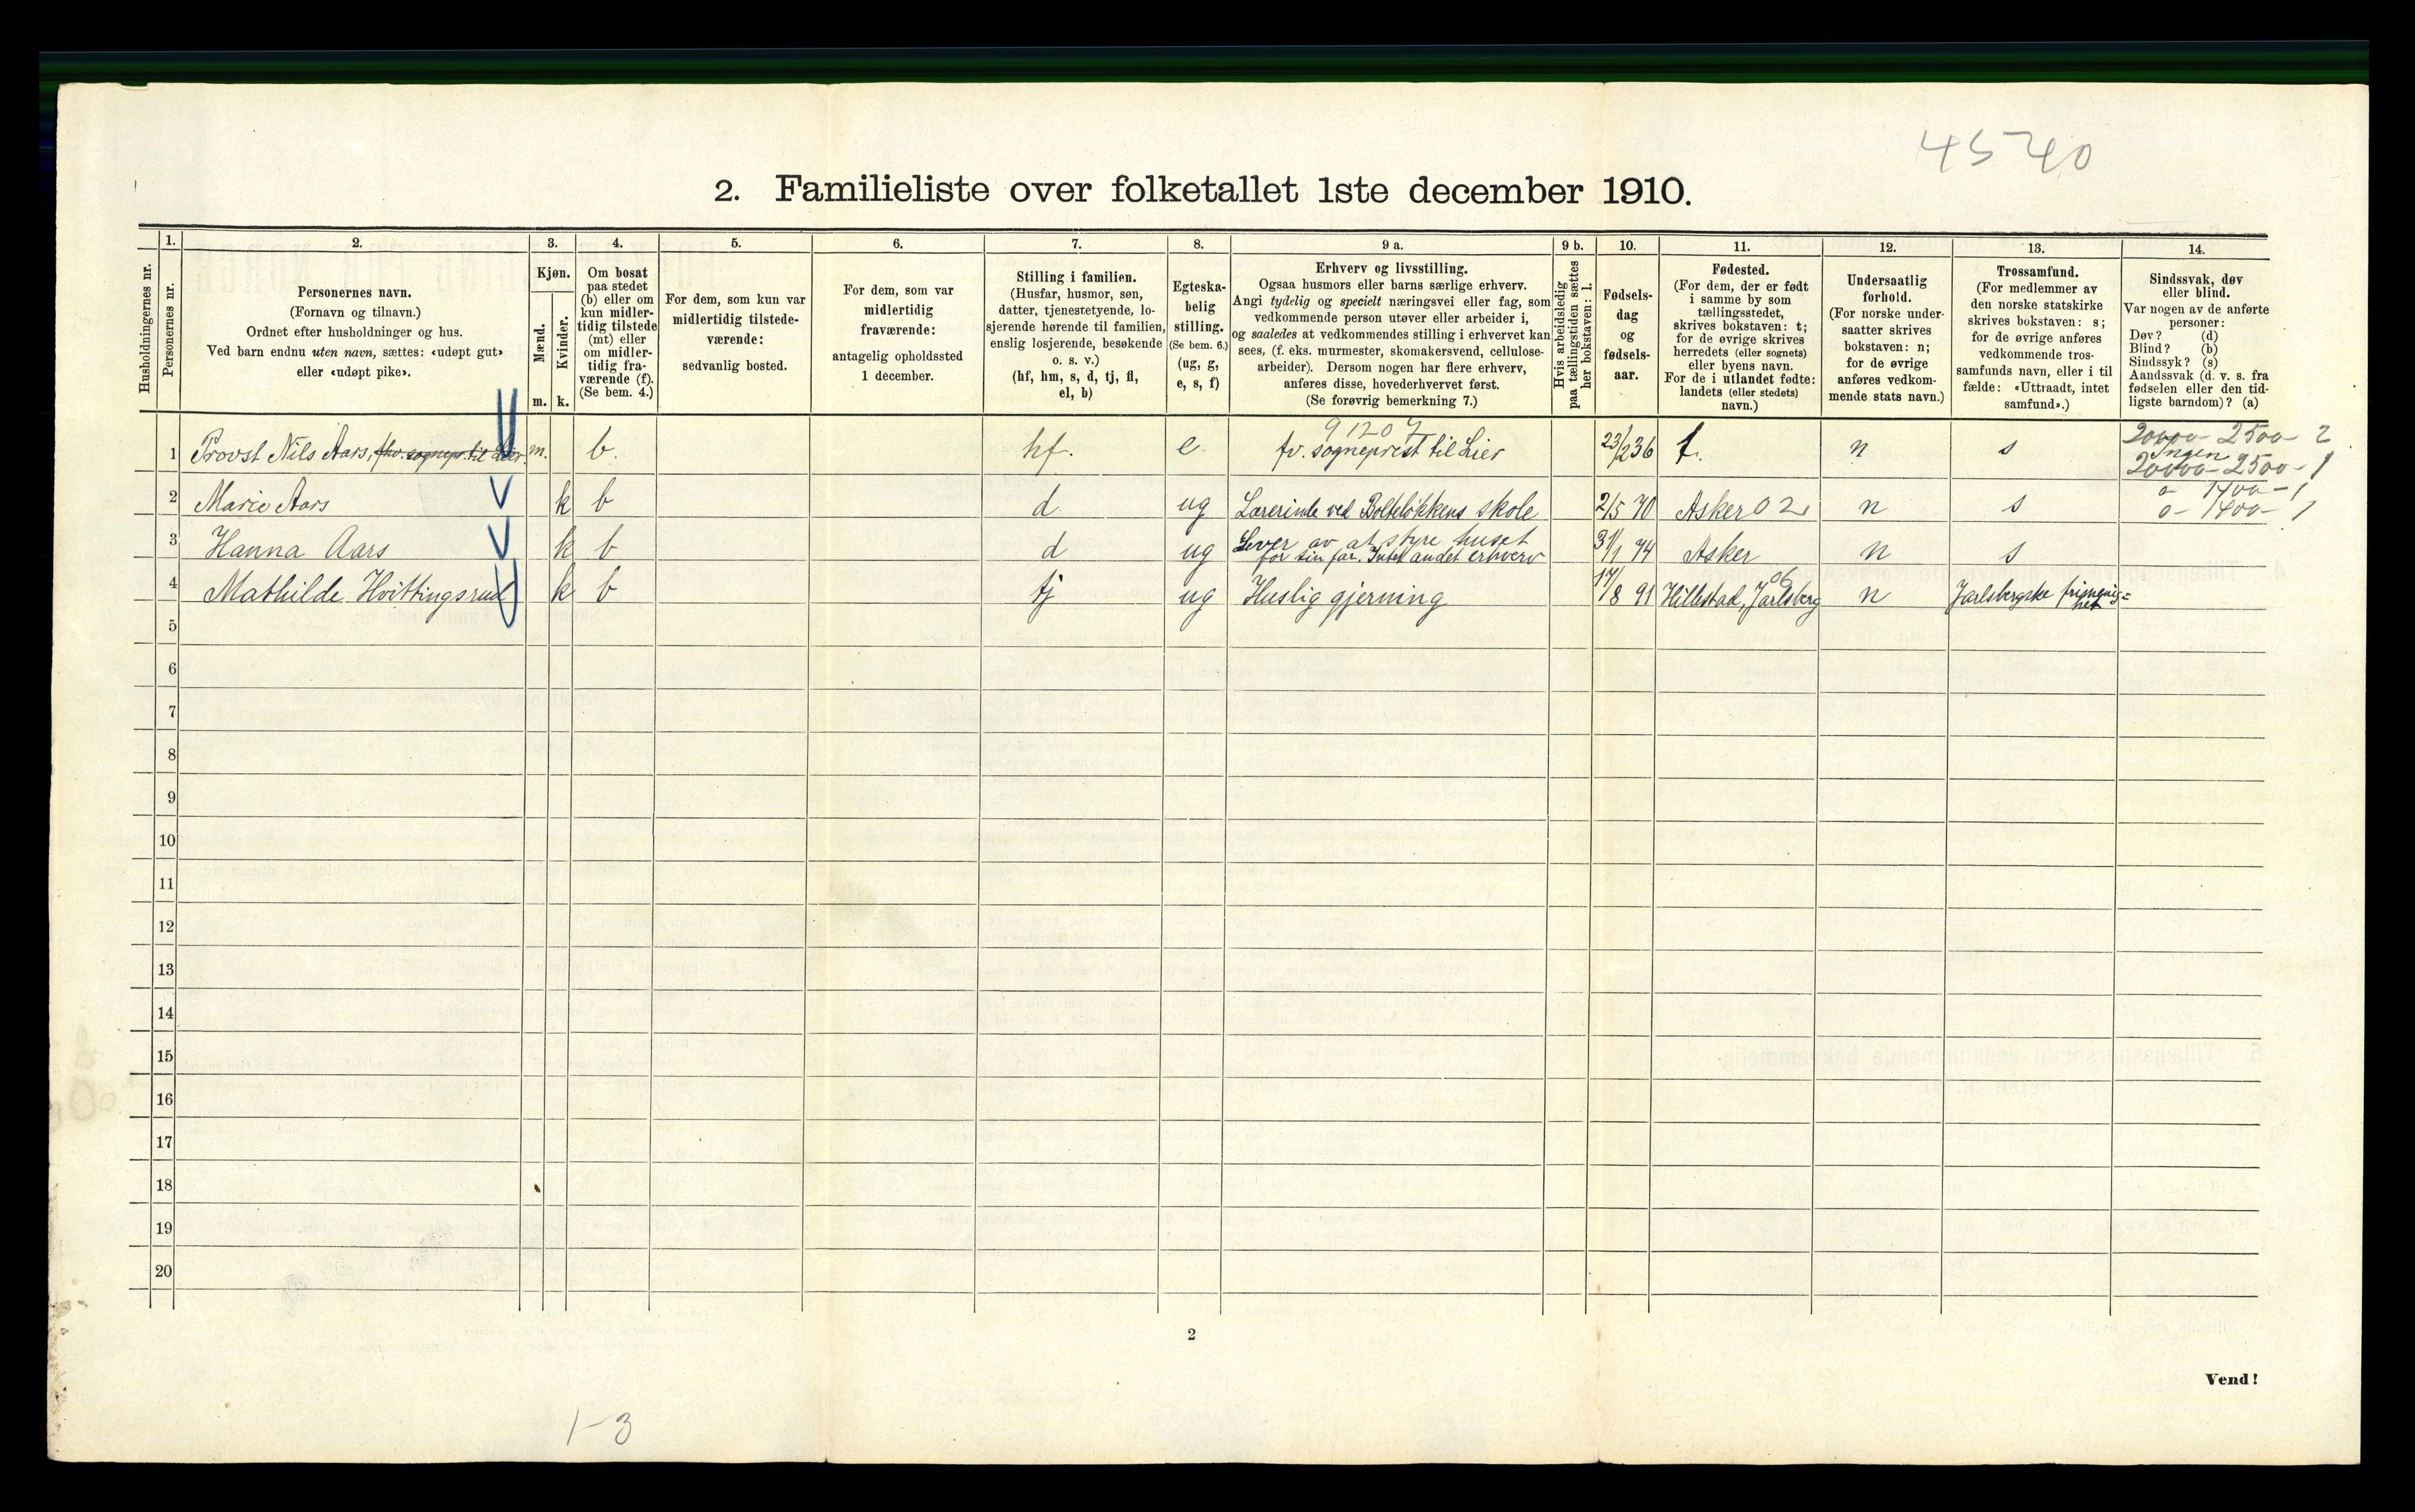 4540
2. Familieliste over folketallet 1ste december 1910.
Husholdningernes nr.
1.
Personernes nr.
2.
Personernes navn.
(Fornavn og tilnavn.)
Ordnet efter husholdninger og hus.
Ved barn endnu uten navn, sættes: «udøpt gut»
eller «udøpt pike».
3.
Kjøn.
Mænd.
Kvinder.
m. k.
4.
Om bosat
paa stedet
(b) eller om
kun midler-
tidig tilstede
(mt) eller
om midler-
tidig fra-
værende (f).
(Se bem. 4.)
5.
For dem, som kun var
midlertidig tilstede-
værende:
sedvanlig bosted.
6.
For dem, som var
midlertidig
fraværende:
antagelig opholdssted
1 december.
7.
Stilling i familien.
(Husfar, husmor, søn,
datter, tjenestetyende, lo-
sjerende hørende til familien,
enslig losjerende, besøkende
o. s. v.)
(hf, hm, s, d, tj, fl,
el, b)
8.
Egteska-
belig
stilling.
(Se bem. 6.)
(ug, g,
e, s, f)
9 a.
Erhverv og livsstilling.
Ogsaa husmors eller barns særlige erhverv.
Angi tydelig og specielt næringsvei eller fag, som
vedkommende person utøver eller arbeider i,
og saaledes at vedkommendes stilling i erhvervet kan
sees, (f. eks. murmester, skomakersvend, cellulose-
arbeider). Dersom nogen har flere erhverv,
anføres disse, hovederhvervet først.
(Se forøvrig bemerkning 7.)
9 b.
Hvis arbeidsledig
paa tællingstiden sættes
her bokstaven: l.
10.
Fødsels-
dag
og
fødsels-
aar.
11.
Fødested.
(For dem, der er født
i samme by som
tællingsstedet,
skrives bokstaven: t;
for de øvrige skrives
herredets (eller sognets)
eller byens navn.
For de i utlandet fødte:
landets (eller stedets)
navn.)
12.
Undersaatlig
forhold.
(For norske under-
saatter skrives
bokstaven: n;
for de øvrige
anføres vedkom-
mende stats navn.)
13.
Trossamfund.
(For medlemmer av
den norske statskirke
skrives bokstaven: s;
for de øvrige anføres
vedkommende tros-
samfunds navn, eller i til
fælde: «Uttraadt, intet
samfund».)
14.
Sindssvak, døv
eller blind.
Var nogen av de anførte
personer:
Døv? (d)
Blind? (b)
Sindssyk? (s)
Aandssvak (d. v. s. fra
fødselen eller den tid-
ligste barndom)? (a)
91207
1 Provst Nils Aars, fhv. sognepr. til Lier. m. b. hf. e. fv. sogneprest til Lier 23/2 36 t. n s
20000 - 2500 - 2
Ingen
20000 - 2500 - 1
2 Marie Aars k b d. ug Lærerinde ved Bolteløkkens skole 2/5 70 Asker 02 n s
o - 1400 - 1
o - 1400 - 1
3 Hanna Aars k b d ug Lever av at styre huset
for sin far. Intet andet erhverv 31/1 74 Asker n s
4 Mathilde Hvittingsrud k b tj ug Huslig gjerning 17/8 91 Hillestad, Jarlsberg 06 n Jarlsbergske frimenig=
het
5
6
7
8
9
10
11
12
13
14
15
16
17
18
19
20
2
Vend!
1-3